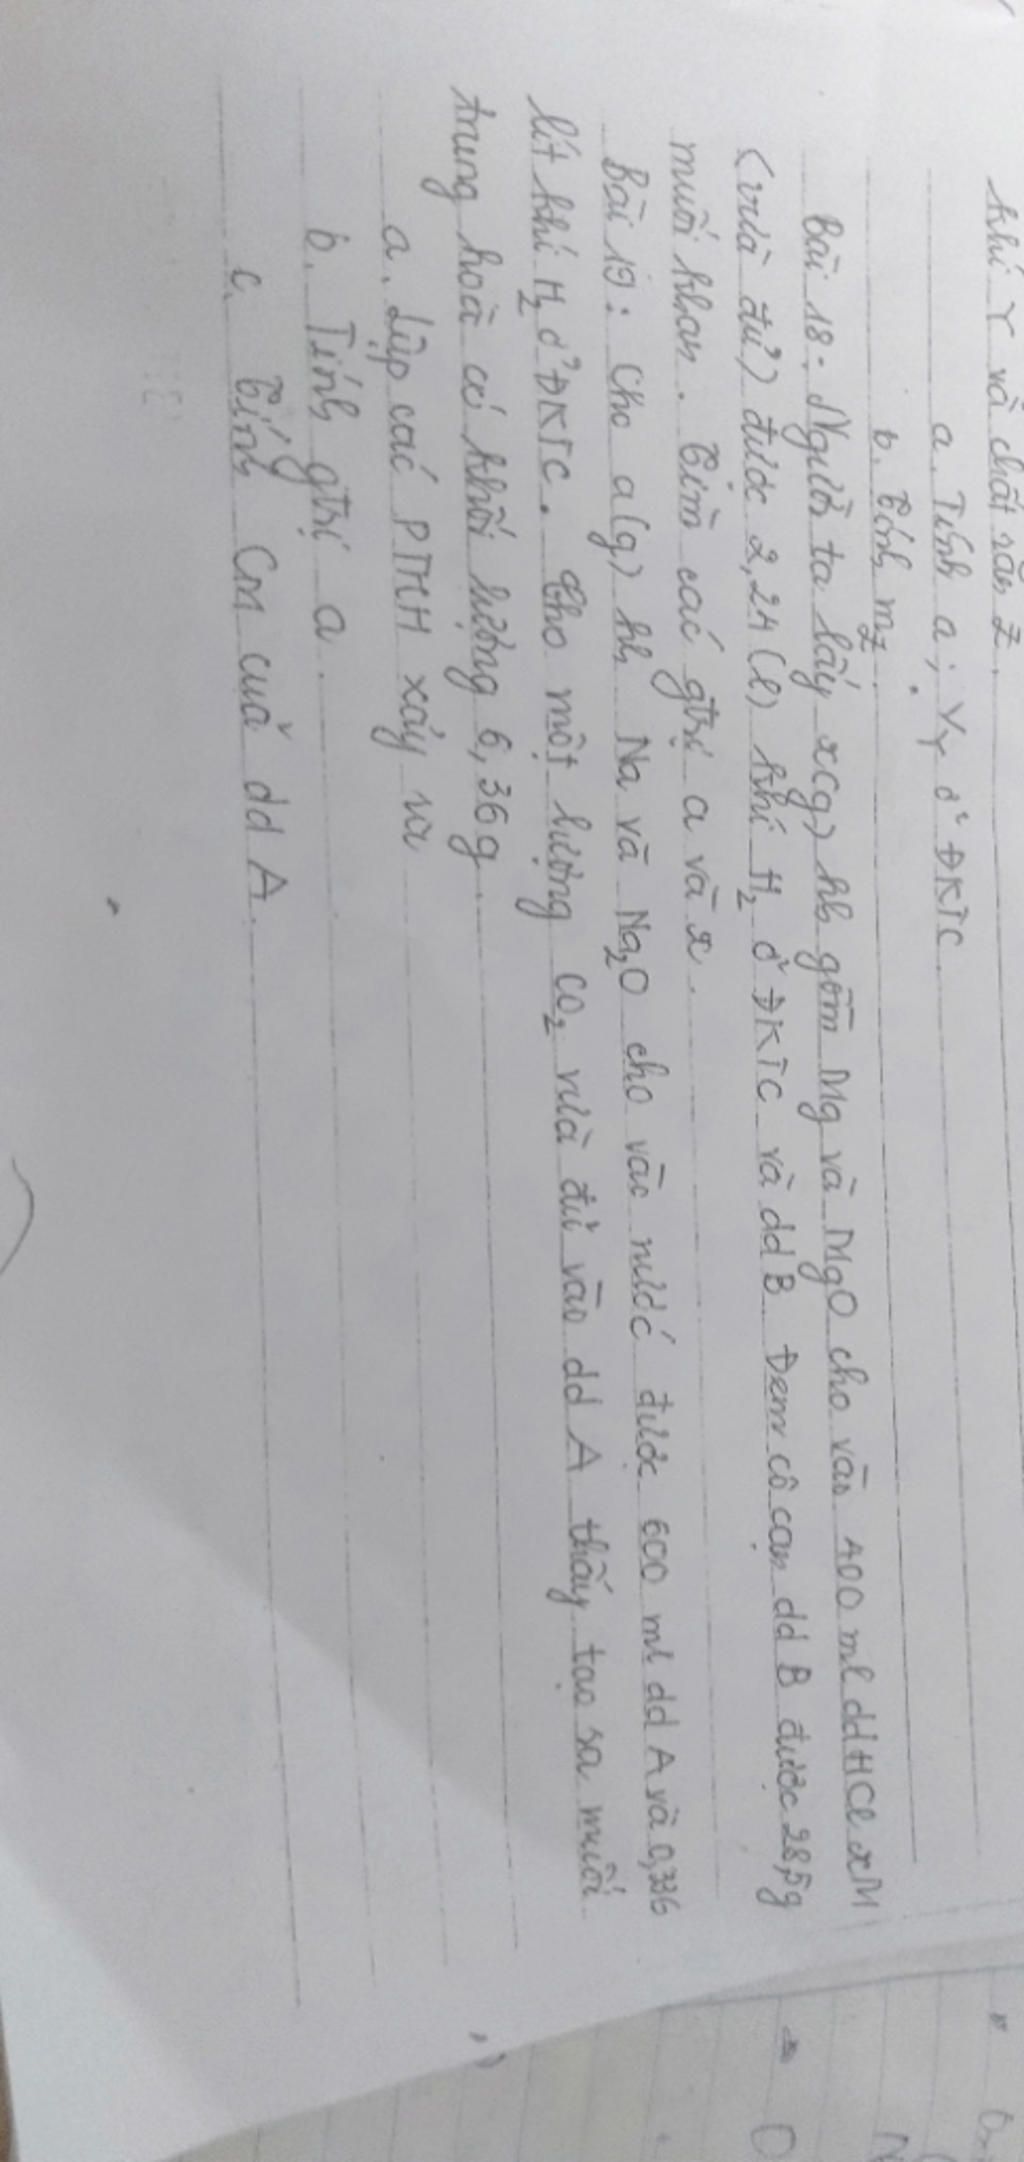 khí Y và chất rắn Z.
a. Tính a; VY ở ĐKTC
b. Tính mZ.
Bài 18: Người ta lấy x(g) hh gồm Mg và MgO cho vào 400 ml dd HCl xM
(vừa đủ) được 2,24 (l) khí H2 ở ĐKTC và dd B Đem cô cạn dd B được 28,5g
muối khan. Tìm các gtrị a và x.
Bài 19: Cho a(g) hh Na và Na2O cho vào nước được 600 ml dd A và 0,336
lít khí H2 ở ĐKTC. Cho một lượng CO2 vừa đủ vào dd A thấy tạo ra muối
trung hoà có khối lượng 6,36g.
a. Lập các PTHH xảy ra
b. Tính gtrị a.
c. Tính CM của dd A.